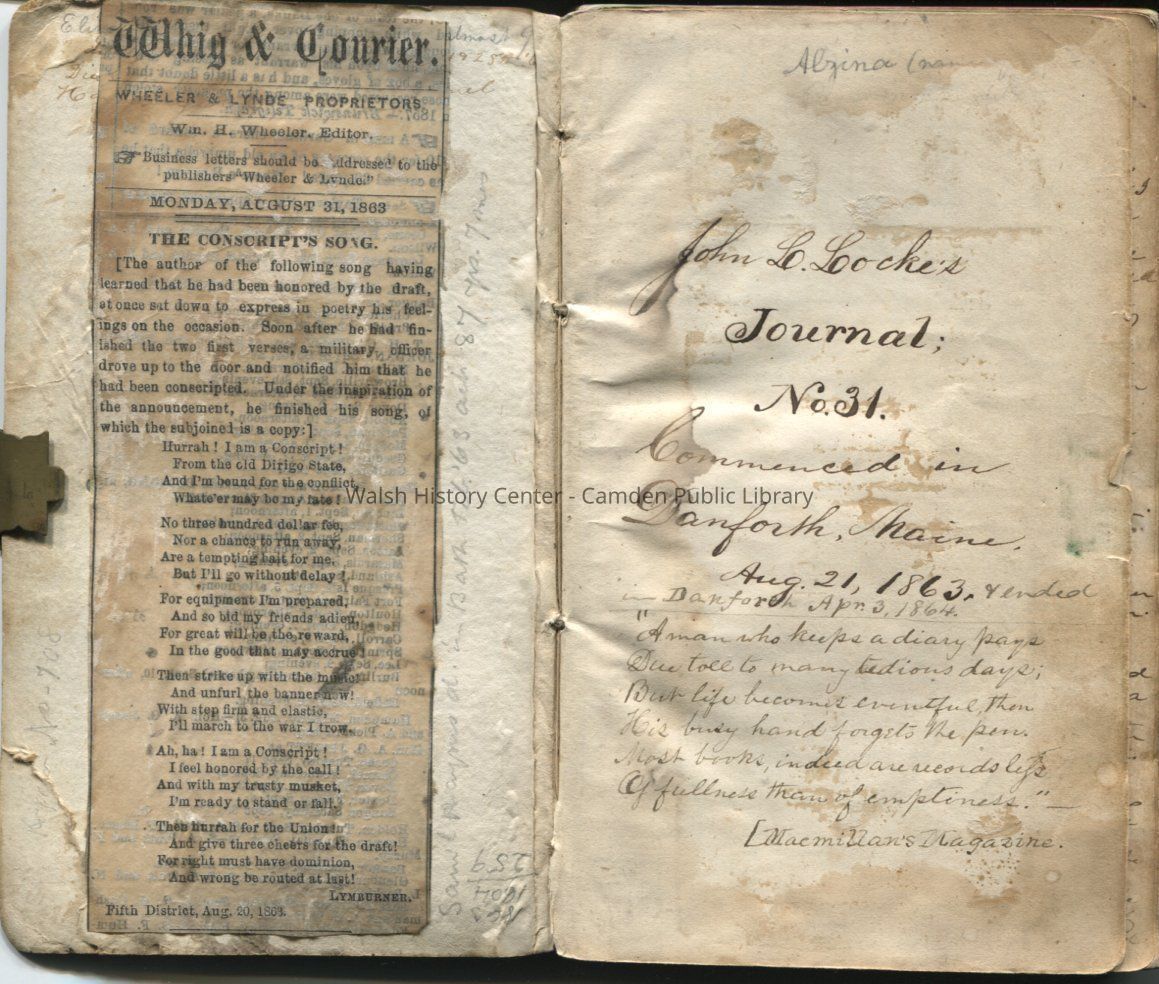 Whig & Courier.
WHEELER & LYNDE, PROPRIETORS.
Wm. H. Wheeler, Editor.
Business letters should be addressed to the
publishers "Wheeler & Lynde."
MONDAY, AUGUST 31, 1863
THE CONSCRIPT'S SONG.
[The author of the following song having
learned that he had been honored by the draft,
at once sat down to express in poetry his feel-
ings on the occasion. Soon after he had fin-
ished the two first verses, a military officer
drove up to the door and notified him that he
had been conscripted. Under the inspiration of
the announcement, he finished his song, of
which the subjoined is a copy:]
Hurrah! I am a Conscript!
From the old Dirigo State,
And I'm bound for the conflict,
Whate'er may be my fate!
No three hundred dollar fee,
Nor a chance to run away,
Are a tempting bait for me,
But I'll go without delay!
For equipment I'm prepared,
And so bid my friends adieu,
For great will be the reward,
In the good that may accrue!
Then strike up with the music!
And unfurl the banner now!
With step firm and elastic,
I'll march to the war I trow.
Ah, ha! I am a Conscript!
I feel honored by the call!
And with my trusty musket,
I'm ready to stand or fall.
Then hurrah for the Union!
And give three cheers for the draft!
For right must have dominion,
And wrong be routed at last!
LYMBURNER.
Fifth District, Aug. 20, 1863.
in Bath
'63
87 yrs. 7 mos
Alzina
John L. Locke's
Journal;
No. 31.
Commenced in
Danforth, Maine,
Aug. 21, 1863. & ended
in Danforth Apr. 3, 1864.
"A man who keeps a diary pays
Due toll to many tedious days;
But life becomes eventful, then
His busy hand forgets the pen.
Most books, indeed are records less
Of fullness than of emptiness."—
[Macmillan's Magazine.
Walsh History Center - Camden Public Library